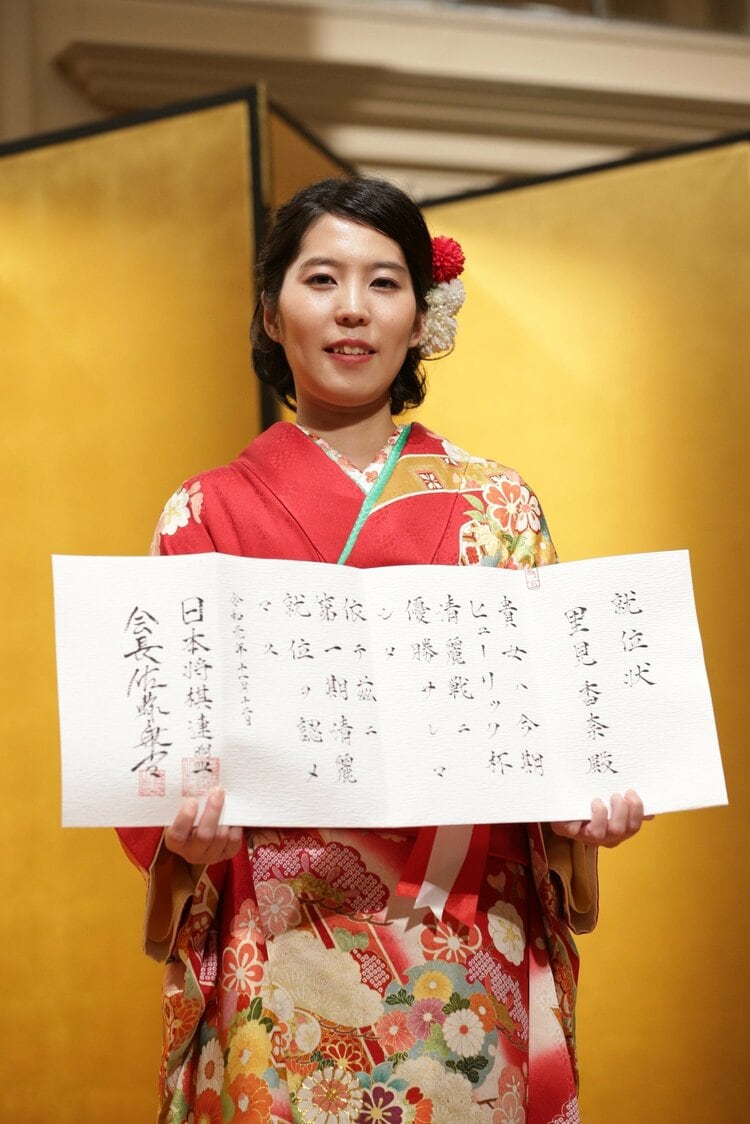 就位状
里見香奈殿
貴女ハ今期
ヒューリック杯
清麗戦ニ
優勝サレマ
シタ
依テ茲ニ
第一期清麗
就位ヲ認メ
マス
令和元年十一月十二日
日本将棋連盟
会長佐藤康光